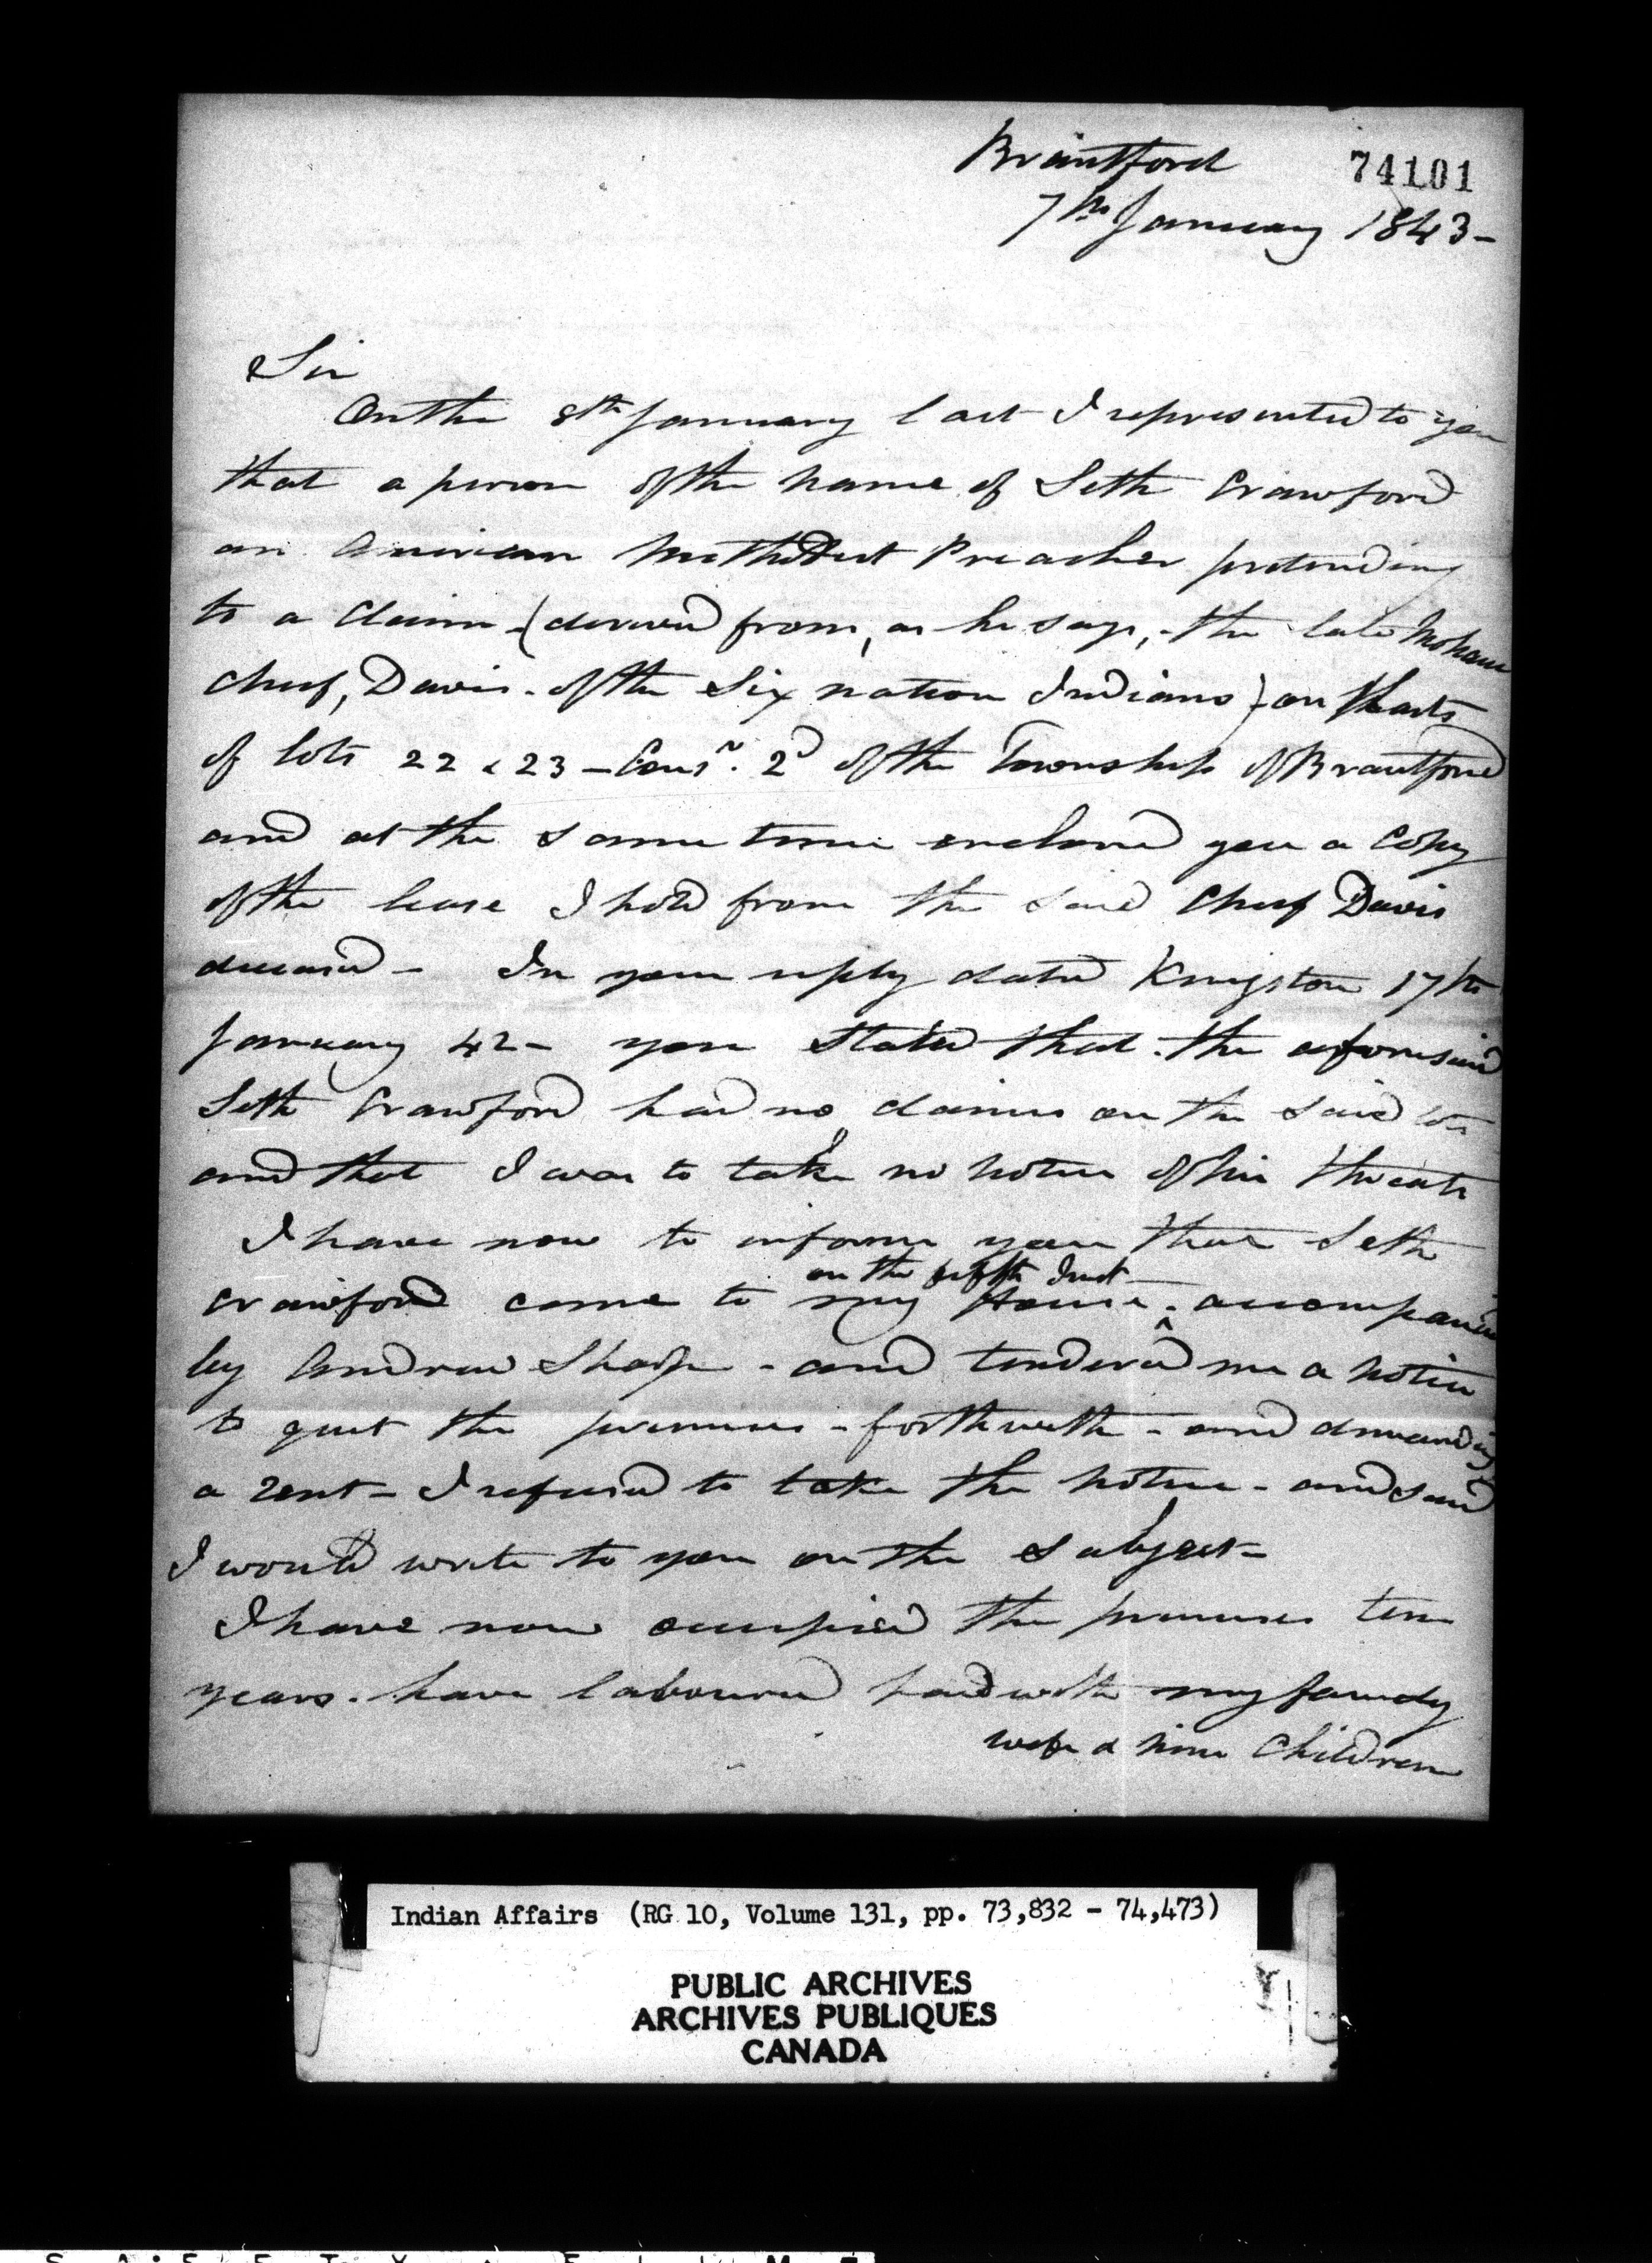 Brantford
74101
7th January 1843-
Sir
On the 8th January last I represented to you
that a person of the name of Seth Crawford
an American Methodist Preacher pretending
to a claim - (derived from, as he says, - the late Mohawk
chief, Davis - of the Six nation Indians) on Parts
of lots 22 & 23 - Cons n. 2d of the Township of Brantford
and at the same time enclosed you a Copy
of the lease I hold from the said Chief Davis
deceased - In your reply dated Kingston 17th
January 42 - you stated that the aforesaid
Seth Crawford had no claims on the said lots
and that I was to take no notice of his threats
I have now to inform you that Seth
on the fifth Inst -
Crawford came to my House - ^ accompanied
by Andrew Sharp - and tendered me a notice
to quit the premises - forthwith - and demanding
a rent - I refused to take the notice - and said
I would write to you on the subject -
I have now occupied the premises ten
years - have laboured hard with my family
wife & nine Children
Indian Affairs (RG 10, Volume 131, pp. 73,832 - 74,473)
PUBLIC ARCHIVES
ARCHIVES PUBLIQUES
CANADA